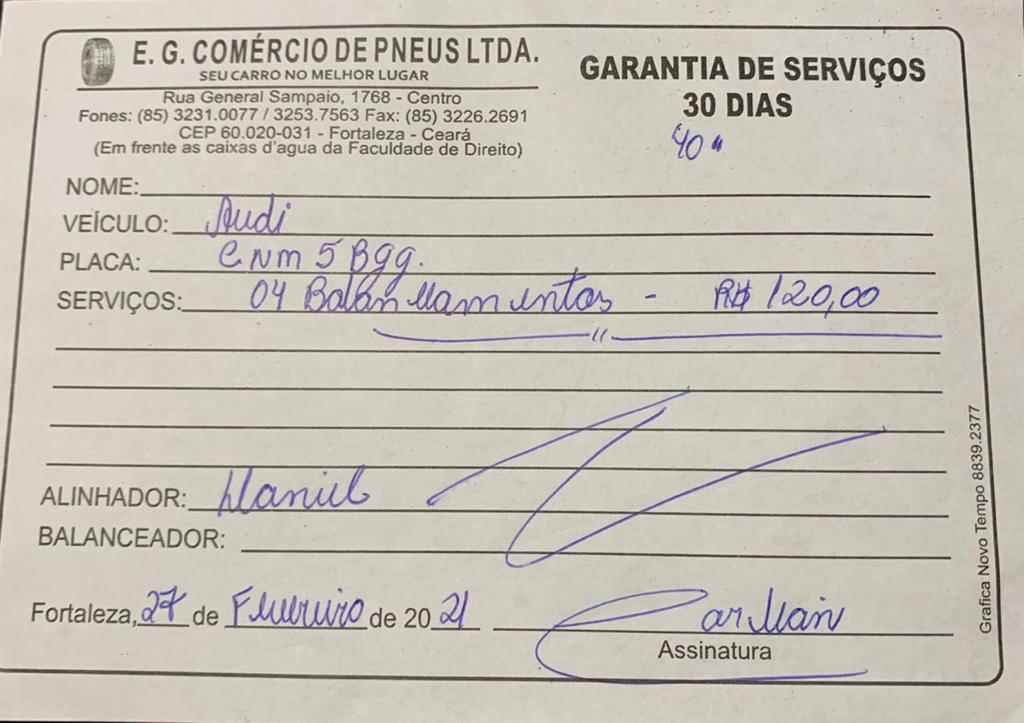 E. G. COMÉRCIO DE PNEUS LTDA.
SEU CARRO NO MELHOR LUGAR
Rua General Sampaio, 1768 - Centro
Fones: (85) 3231.0077 / 3253.7563 Fax: (85) 3226.2691
CEP 60.020-031 - Fortaleza - Ceará
(Em frente as caixas d'agua da Faculdade de Direito)
GARANTIA DE SERVIÇOS
30 DIAS
NOME:
VEÍCULO: Audi
PLACA:
SERVIÇOS: 04 - R$ 120,00
ALINHADOR: Daniel
BALANCEADOR:
Fortaleza, 27 de Fevereiro de 2021
Assinatura
Grafica Novo Tempo 8839.2377